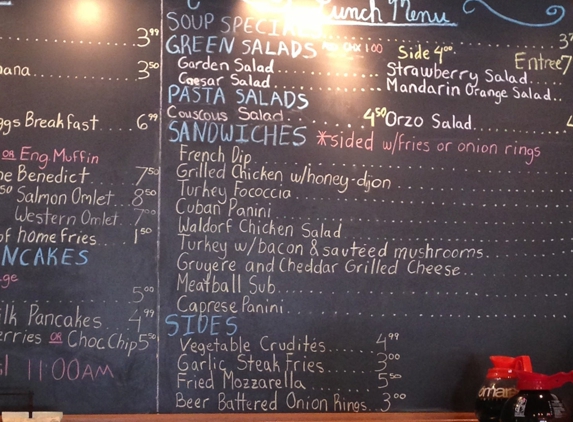 3.99
ana.......3.50
ggs Breakfast....6.99
OR Eng. Muffin
ne Benedict 7.50
50 Salmon Omlet. 8.50
Western Omlet. 7.00
of home fries....1.50
NCAKES
ge
5.00
ilk Pancakes...4.99
erries OR Choc Chip 5.50
11:00AM
Lunch Menu
SOUP SPECIALS
GREEN SALADS Side 4.00. Entree 7
Garden Salad
Strawberry Salad
Caesar Salad
Mandarin Orange Salad..
PASTA SALADS
Couscous Salad 4.50 Orzo Salad
SANDWICHES *sided w/fries or onion rings
French Dip
Grilled Chicken w/honey-dijon
Turkey Fococcia
Cuban Panini
Waldorf Chicken Salad
Turkey w/bacon & sautéed mushrooms
Gruyere and Cheddar Grilled Cheese
Meatball Sub
Caprese Panini
SIDES
Vegetable Crudités 4.99
Garlic Steak Fries 3.00
Fried Mozzarella 5.50
Beer Battered Onion Rings...3.00